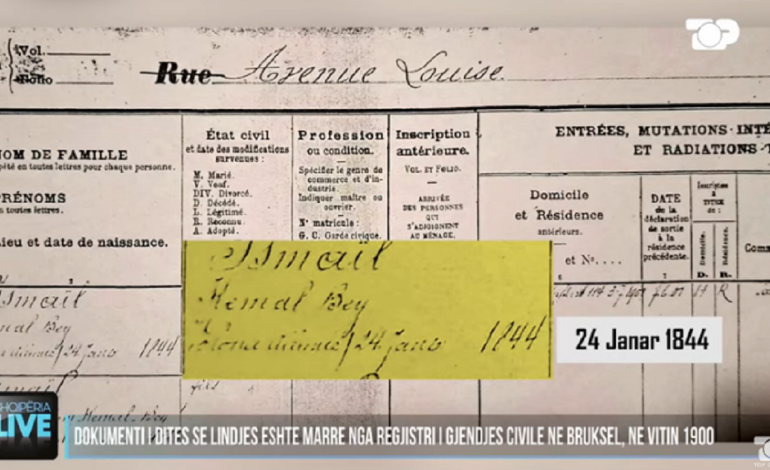 TOP
Vol.
Folio
Rue Avenue Louise.
NOM DE FAMILLE
répété en toutes lettres pour chaque personne.
PRÉNOMS
en toutes lettres.
Lieu et date de naissance.
État civil
et date des modifications
survenues :
M. Marié.
V. Veuf.
DIV. Divorcé.
D. Décédé.
L. Légitimé.
R. Reconnu.
A. Adopté.
Profession
ou condition.
Spécifier le genre de
commerce et d'in-
dustrie.
Indiquer maître ou
ouvrier.
N° matricule :
G. C. Garde civique.
Inscription
antérieure.
VOL. ET FOLIO.
ARRIVÉE
DES PERSONNES
QUI
S'ADJOIGNENT
AU MÉNAGE.
ENTRÉES, MUTATIONS-INTÉ
ET RADIATIONS-
Domicile
et Résidence
antérieurs.
et No....
DATE
de la
déclaration
de sortie
à la
résidence
précédente.
Inscription
à
TITRE
de :
Domicile.
Résidence.
D. R.
6
7
Ismaïl
Kemal Bey
24 Janv 1844
Ismaïl
Kemal Bey
24 Janv 1844
H R
fils
Kemal Bey
24 Janar 1844
SHQIPËRIA
LIVE
DOKUMENTI I DITES SE LINDJES ESHTE MARRE NGA REGJISTRI I GJENDJES CIVILE NE BRUKSEL, NE VITIN 1900